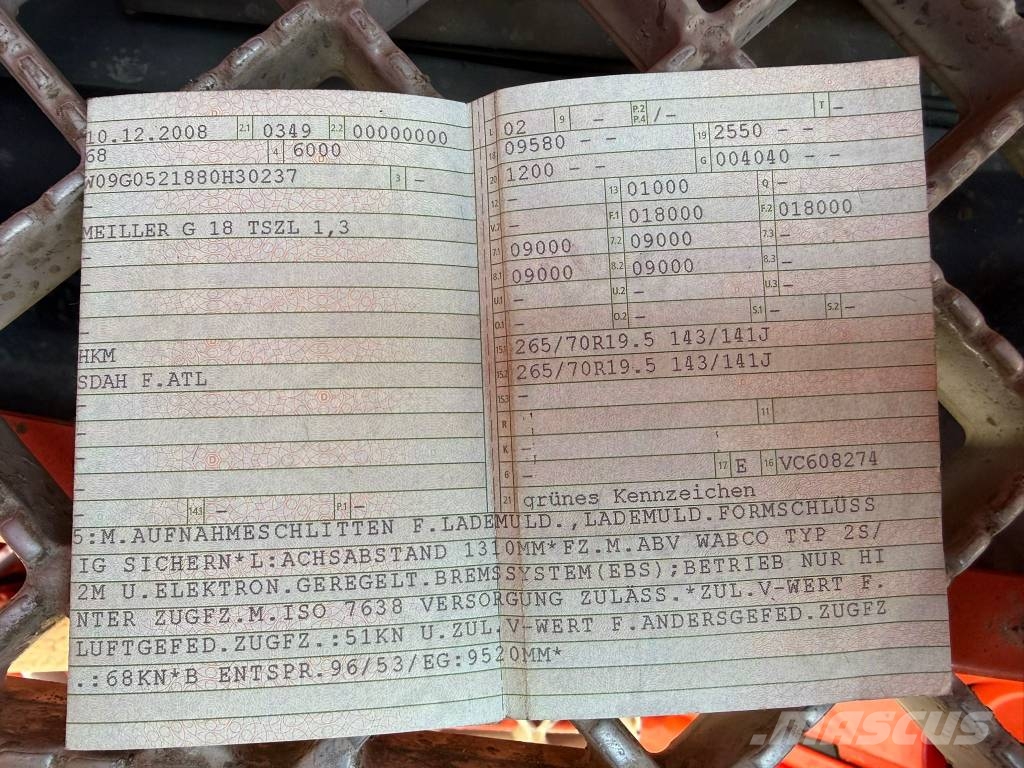 10.12.2008 2.1 0349 2.2 00000000
68 4 6000
W09G0521880H30237 3 –
MEILLER G 18 TSZL 1,3
–
–
–
–
HKM
SDAH F.ATL
–
–
–
–
14.3 – P.1 –
L 02 9 – P.2 P.4 /– T –
18 09580 – – 19 2550 – –
20 1200 – – G 004040 – –
12 – 13 01000 Q –
V.7 – F.1 018000 F.2 018000
7.1 09000 7.2 09000 7.3 –
8.1 09000 8.2 09000 8.3 –
U.1 – U.2 – U.3 –
O.1 – O.2 – S.1 – S.2 –
15.1 265/70R19.5 143/141J
15.2 265/70R19.5 143/141J
15.3 –
R – 11
K –
6 – 17 E 16 VC608274
21 grünes Kennzeichen
5:M.AUFNAHMESCHLITTEN F.LADEMULD.,LADEMULD.FORMSCHLÜSS
IG SICHERN*L:ACHSABSTAND 1310MM*FZ.M.ABV WABCO TYP 2S/
2M U.ELEKTRON.GEREGELT.BREMSSYSTEM(EBS);BETRIEB NUR HI
NTER ZUGFZ.M.ISO 7638 VERSORGUNG ZULASS.*ZUL.V-WERT F.
LUFTGEFED.ZUGFZ.:51KN U.ZUL.V-WERT F.ANDERSGEFED.ZUGFZ
.:68KN*B ENTSPR.96/53/EG:9520MM*
MASCUS